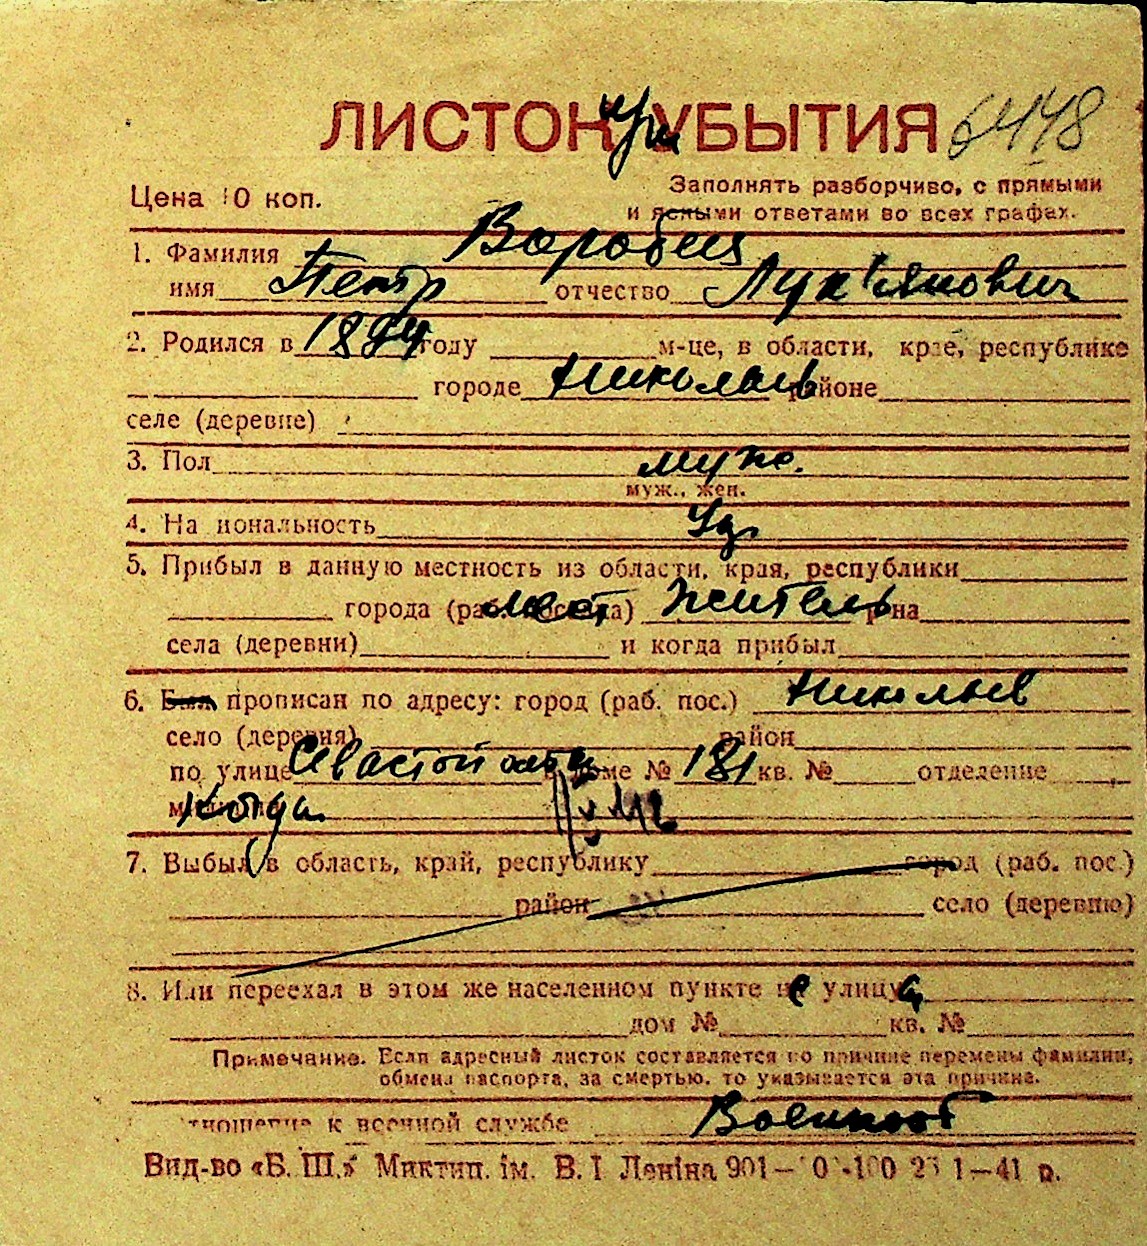 ЛИСТОК УБЫТИЯ 6448
при
Цена 10 коп. Заполнять разборчиво, с прямыми
и ясными ответами во всех графах.
1. Фамилия Воробец
имя Петр отчество Лук'янович
2. Родился в 1894 году м-це, в области, крае, республике
городе Николаев районе
селе (деревне)
3. Пол муж.
муж., жен.
4. На иональность
5. Прибыл в данную местность из области, края, республики
города (раб. поселка) мест житель района
села (деревни) и когда прибыл
6. Был прописан по адресу: город (раб. пос.) Николаев
село (деревня) район
по улице Севастопол в доме № 181 кв. № отделение
милиции когда
7. Выбыл в область, край, республику город (раб. пос.)
район село (деревню)
8. Или переехал в этом же населенном пункте на улицу
дом № кв. №
Примечание. Если адресный листок составляется по причине перемены фамилии,
обмена паспорта, за смертью, то указывается эта причина.
тношение к военной службе Военнооб
Вид-во «Б. Ш.» Миктип. ім. В. І Леніна 901— 1—41 р.